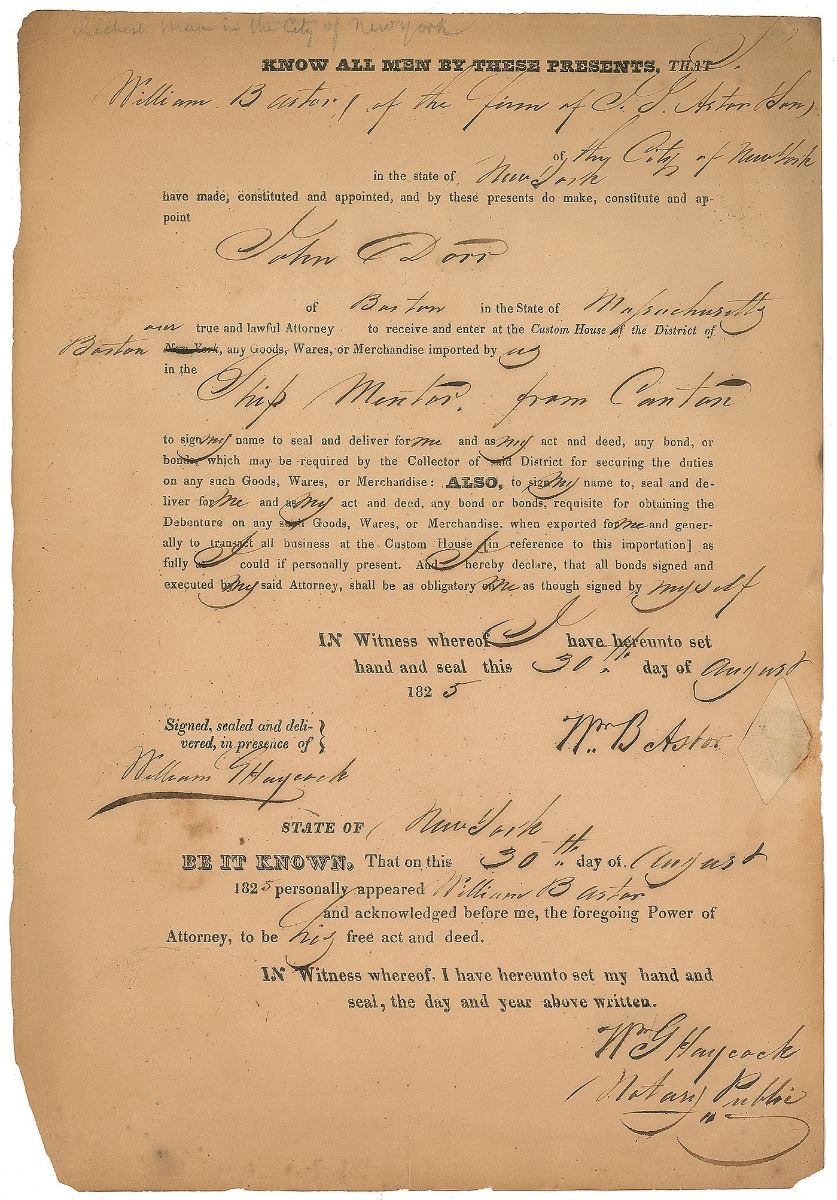 Richest Man in the City of New york
KNOW ALL MEN BY THESE PRESENTS, THAT I.
William B Astor, (of the firm of J. J. Astor & Son)
of thy City of New York
in the state of New York
have made, constituted and appointed, and by these presents do make, constitute and ap-
point
John Dorr
of Boston in the State of Massachusetts
our true and lawful Attorney to receive and enter at the Custom House of the District of
Boston New York, any Goods, Wares, or Merchandise imported by us
in the
Ship Mentor. from Canton
to sign my name to seal and deliver for me and as my act and deed, any bond, or
bonds, which may be required by the Collector of said District for securing the duties
on any such Goods, Wares, or Merchandise: ALSO, to sign my name to, seal and de-
liver for me and as my act and deed, any bond or bonds, requisite for obtaining the
Debenture on any such Goods, Wares, or Merchandise, when exported for me and gener-
ally to transact all business at the Custom House [in reference to this importation] as
fully as I could if personally present. And I hereby declare, that all bonds signed and
executed by my said Attorney, shall be as obligatory on me as though signed by myself
IN Witness whereof I have hereunto set
hand and seal this 30th day of August
1825
Signed, sealed and deli-
vered, in presence of
Wm. B Astor
William G Haycock
STATE OF New York
BE IT KNOWN, That on this 30th day of August
1825 personally appeared William B Astor
and acknowledged before me, the foregoing Power of
Attorney, to be his free act and deed.
IN Witness whereof, I have hereunto set my hand and
seal, the day and year above written.
Wm G Haycock
Notary Public